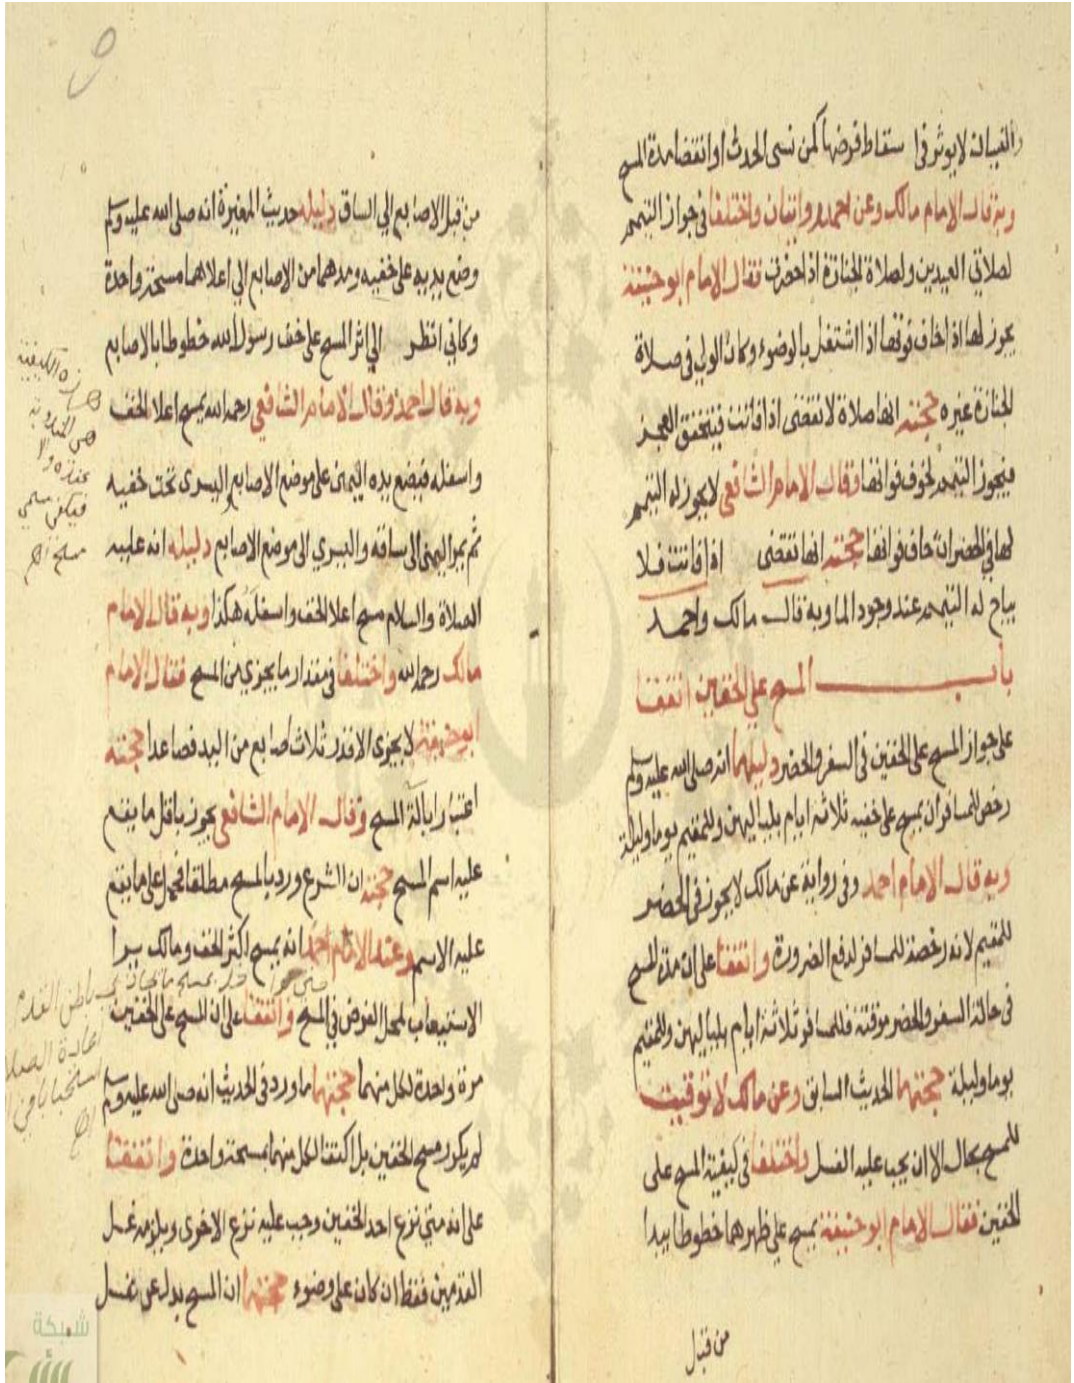 والنسيان لا يوثر في اسقاط فرضها كمن نسى الحدث او انقضا مدة المسح
وبه قال الامام مالك وعن احمد روايتان واختلفا في جواز التيمم
لصلاتي العيدين ولصلاة الجنازة اذا حضرت فقال الامام ابو حنيفة
يجوز لها اذا خاف فوتها اذا اشتغل بالوضوء وكان الولي في صلاة
الجنازة غيره حجته انها صلاة لا تقضى اذا فاتت فيتحقق العجز
فيجوز التيمم لخوف فواتها وقال الامام الشافعي لا يجوز له التيمم
لها في الحضر ان خاف فواتها حجته انها تقضى اذا فاتت فلا
يباح له التيمم عند وجود الما وبه قال مالك واحمد
باب المسح على الخفين اتفقا
على جواز المسح على الخفين في السفر والحضر دليلهما انه صلى الله عليه وسلم
رخص للمسافر ان يمسح على خفيه ثلاثة ايام بلياليهن وللمقيم يوما وليلة
وبه قال الامام احمد وفي رواية عن مالك لا يجوز في الحضر
للمقيم لانه رخصة للمسافر لدفع الضرورة واتفقا على ان مدة المسح
في حالة السفر والحضر موقتة فللمسافر ثلاثة ايام بلياليهن وللمقيم
يوما وليلة حجتهما الحديث السابق وعن مالك لا توقيت
للمسح بحال الا ان يجب عليه الغسل واختلفا في كيفية المسح على
الخفين فقال الامام ابو حنيفة يمسح على ظهرهما خطوطا يبدا
من قبل
9
من قبل الاصابع الي الساق دليله حديث المغيرة انه صلى الله عليه وسلم
وضع يديه على خفيه ومدهما من الاصابع الي اعلاهما مسحة واحدة
وكاني انظر الي اثر المسح على خف رسول الله خطوطا بالاصابع
وبه قال احمد وقال الامام الشافعي رحمه الله يمسح اعلا الخف
واسفله فيضع يده اليمنى على موضع الاصابع واليسرى تحت خفيه
ثم يمر اليمنى الى ساقه واليسري الى موضع الاصابع دليله انه عليه
الصلاة والسلام مسح اعلا الخف واسفله هكذا وبه قال الامام
مالك رحمه الله واختلفا في مقدار ما يجزي من المسح فقال الامام
ابو حنيفة لا يجزى الا قدر ثلاث اصابع من اليد فصاعدا حجته
اعتبارا بالة المسح وقال الامام الشافعي يجوز باقل ما يقع
عليه اسم المسح حجته ان الشرع ورد بالمسح مطلقا فحمل على ما يقع
عليه الاسم وعند الامام احمد انه يمسح اكثر الخف ومالك يرا
الاستيعاب لمحل الفرض في المسح واتفقا على ان المسح على الخفين
مرة واحدة لكل منهما حجتهما ما ورد في الحديث انه صلى الله عليه وسلم
لم يكرر مسح الخفين بل اكتفا لكل منهما بمسحة واحدة واتفقا
على انه متي نزع احد الخفين وجب عليه نزع الاخرى ويلزمه غسل
القدمين فقط ان كان على وضوء حجتهما ان المسح بدل عن غسل
هذه الكيفية
هي المندوبة
عنده والا
فيكفي مسمى
مسح اهـ
باطن القدم
اعادة الصلاة
استحبابا في
اهـ
شبكة